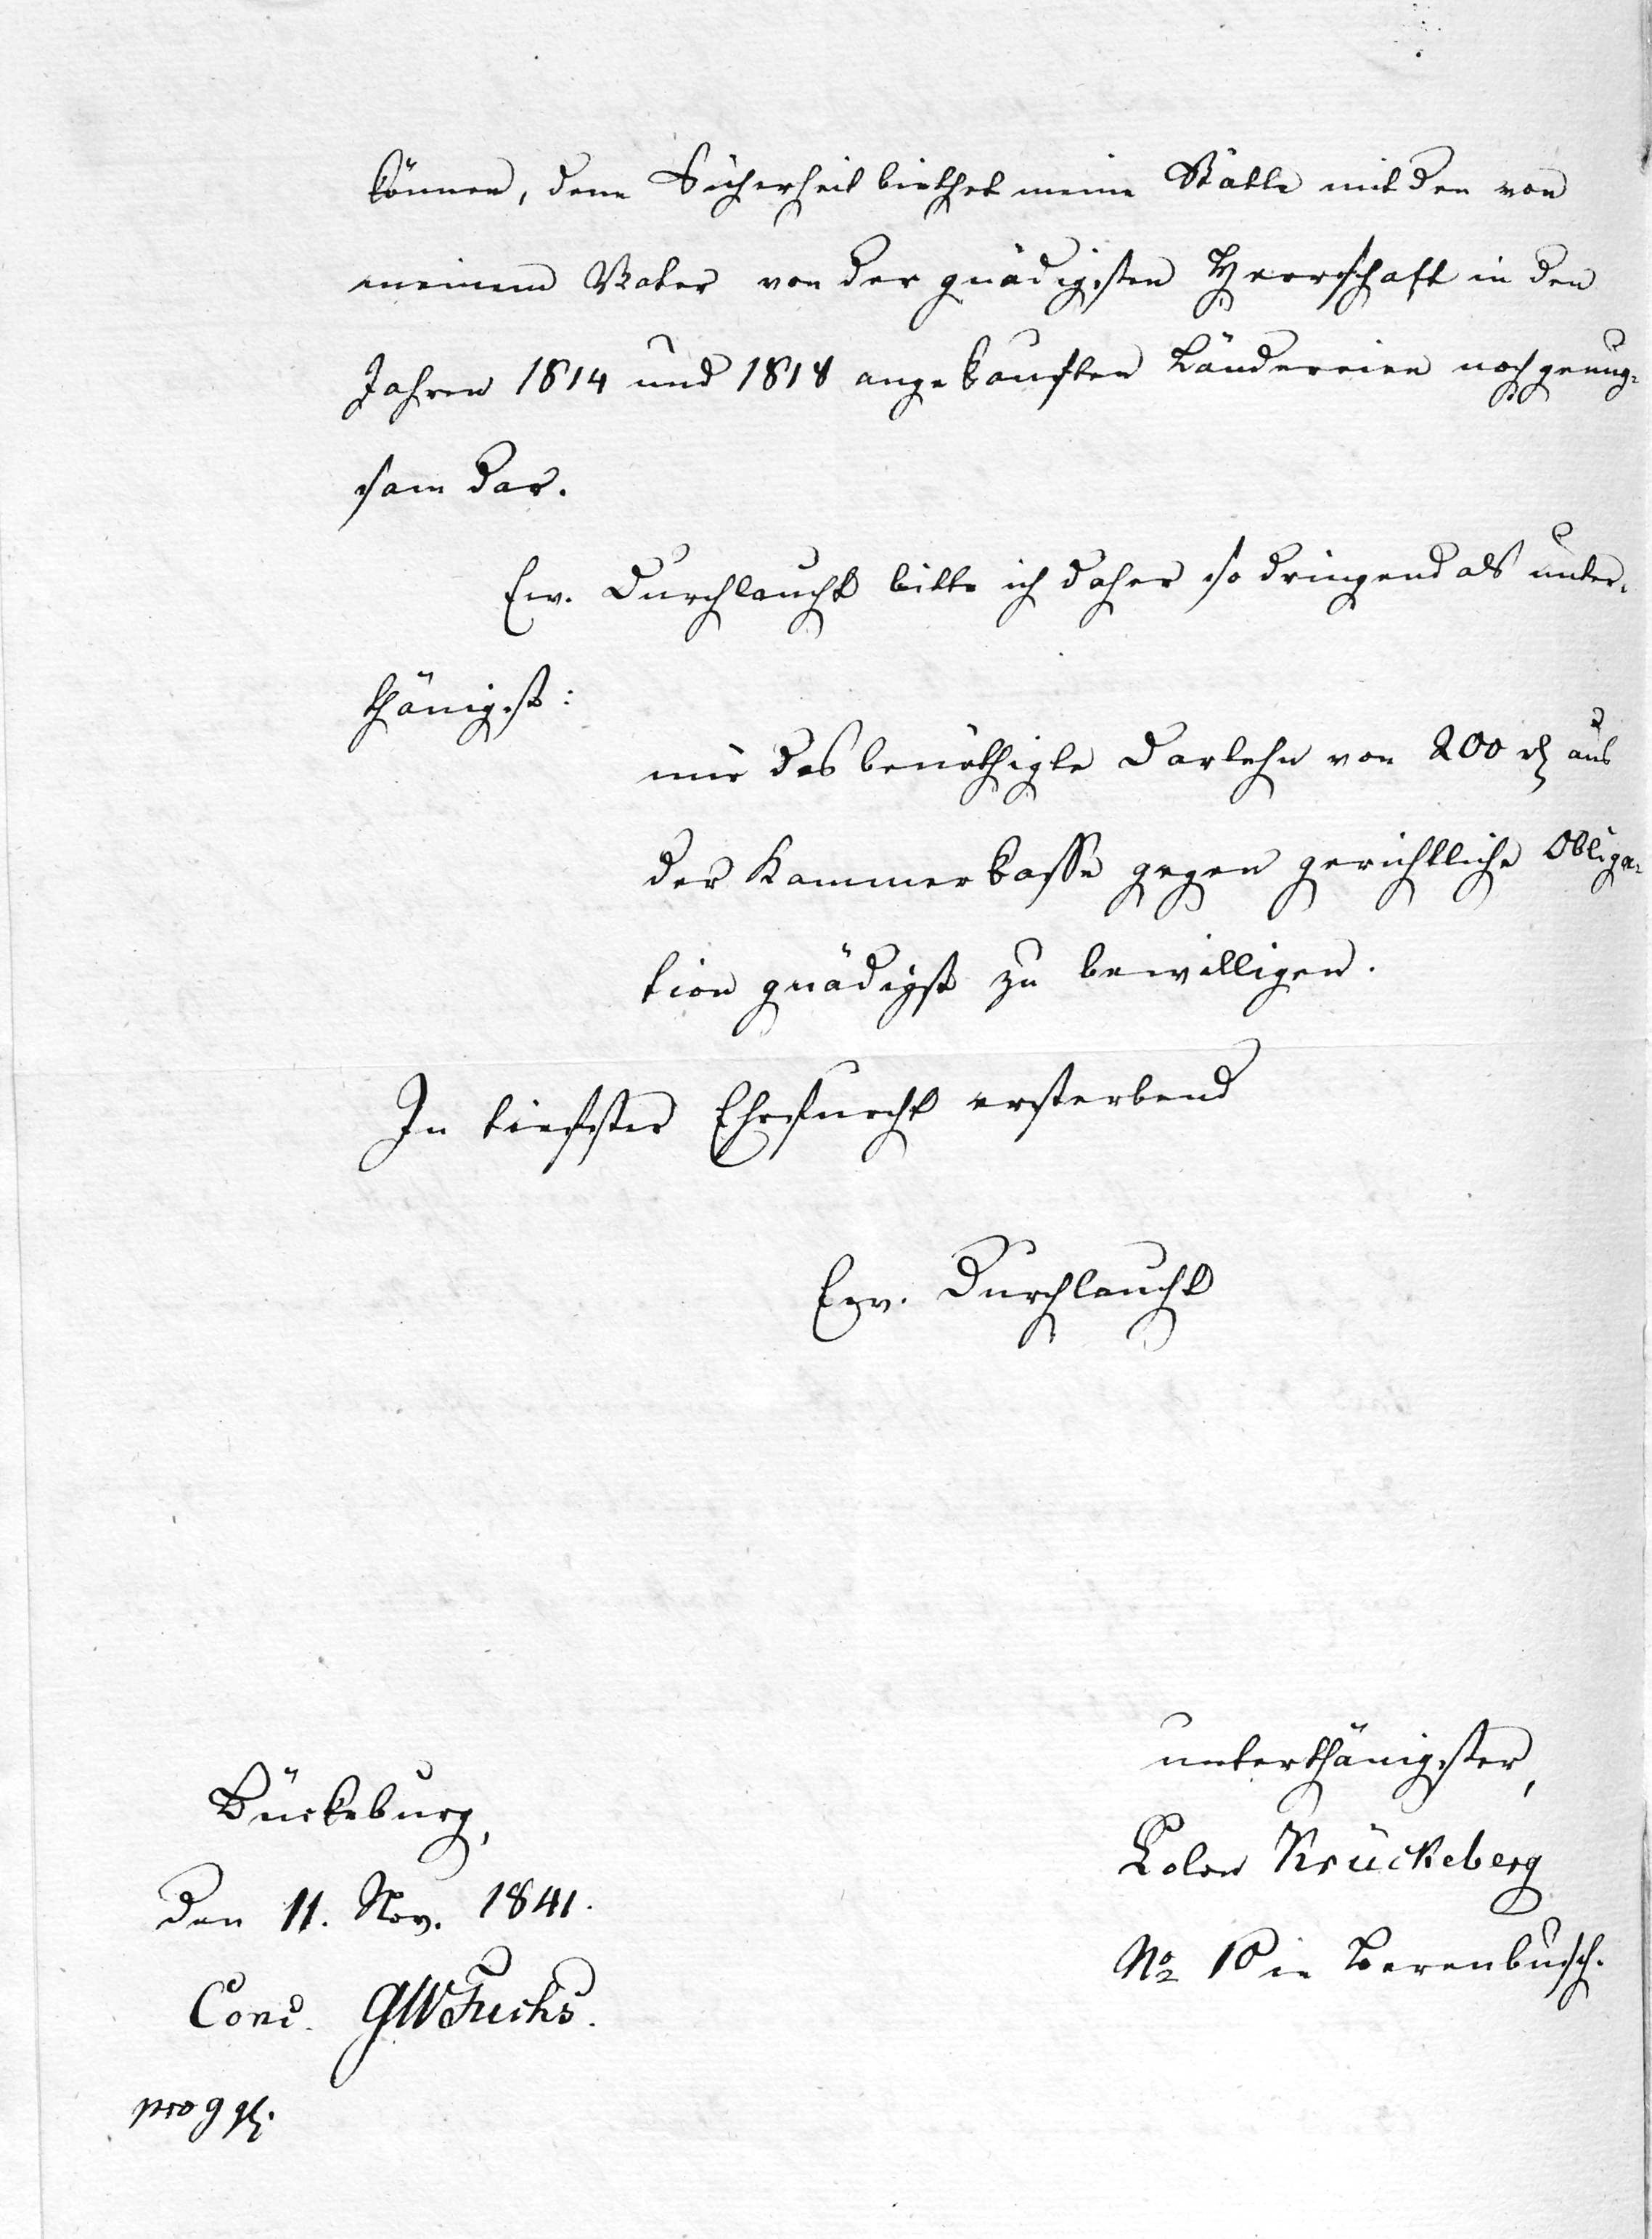 können, denn Sicherheit biethet meine Stätte mit den von
meinem Vater von der gnädigsten Herrschaft in den
Jahren 1814 und 1818 angekauften Ländereien noch genug-
sam dar.
Ew. Durchlaucht bitte ich daher so dringend als unter-
thänigst:
mir das benöthigte Darlehn von 200 rth aus
der Kammerkasse gegen gerichtliche Obliga-
tion gnädigst zu bewilligen.
In tiefster Ehrfurcht ersterbend
Ew. Durchlaucht
unterthänigster,
Colon Krückeberg
No 10 in Berenbusch.
Bückeburg,
den 11. Nov. 1841.
Conc. GWFuchs.
pro 9 ggl.